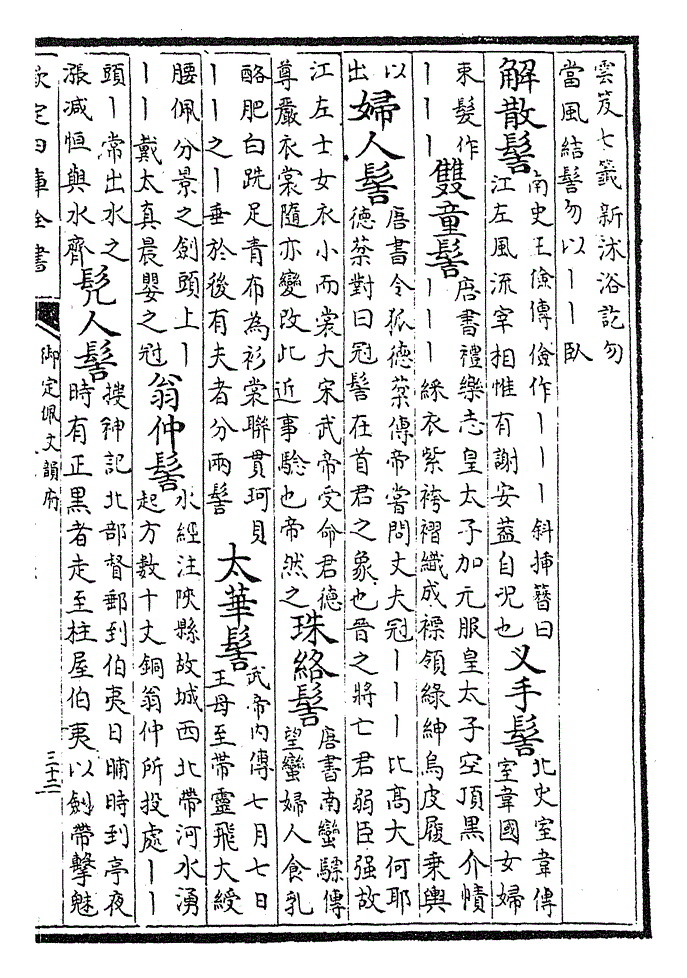 雲笈七籤新沐浴訖勿
當風結髻勿以丨丨臥
解散髻
南史王儉傳儉作丨丨丨斜插簪曰
江左風流宰相惟有謝安蓋自況也
义手髻
北史室韋傳
室韋國女婦
束髮作
丨丨丨
雙童髻
唐書禮樂志皇太子加元服皇太子空頂黑介幘
丨丨丨綵衣紫袴褶織成褾領綠紳烏皮履乗輿
以
出
婦人髻
唐書令狐德棻傳帝嘗問丈夫冠丨丨丨比髙大何耶
德棻對曰冠髻在首君之象也晉之將亡君弱臣强故
江左士女衣小而裳大宋武帝受命君德
尊嚴衣裳隨亦變改此近事驗也帝然之
珠絡髻
唐書南蠻驃傳
望蠻婦人食乳
酪肥白跣足青布為衫裳聯貫珂貝
丨丨之丨垂於後有夫者分兩髻
太華髻
武帝内傳七月七日
王母至帶靈飛大綬
腰佩分景之劍頭上丨
丨丨戴太真晨嬰之冠
翁仲髻
水經注陜縣故城西北帶河水湧
起方數十丈銅翁仲所投處丨丨
頭丨常出水之
漲減恒與水齊
髠人髻
搜神記北部督郵到伯夷日晡時到亭夜
時有正黒者走至柱屋伯夷以劍帶擊魅
欽定四庫全書
御定佩文韻府
三十二